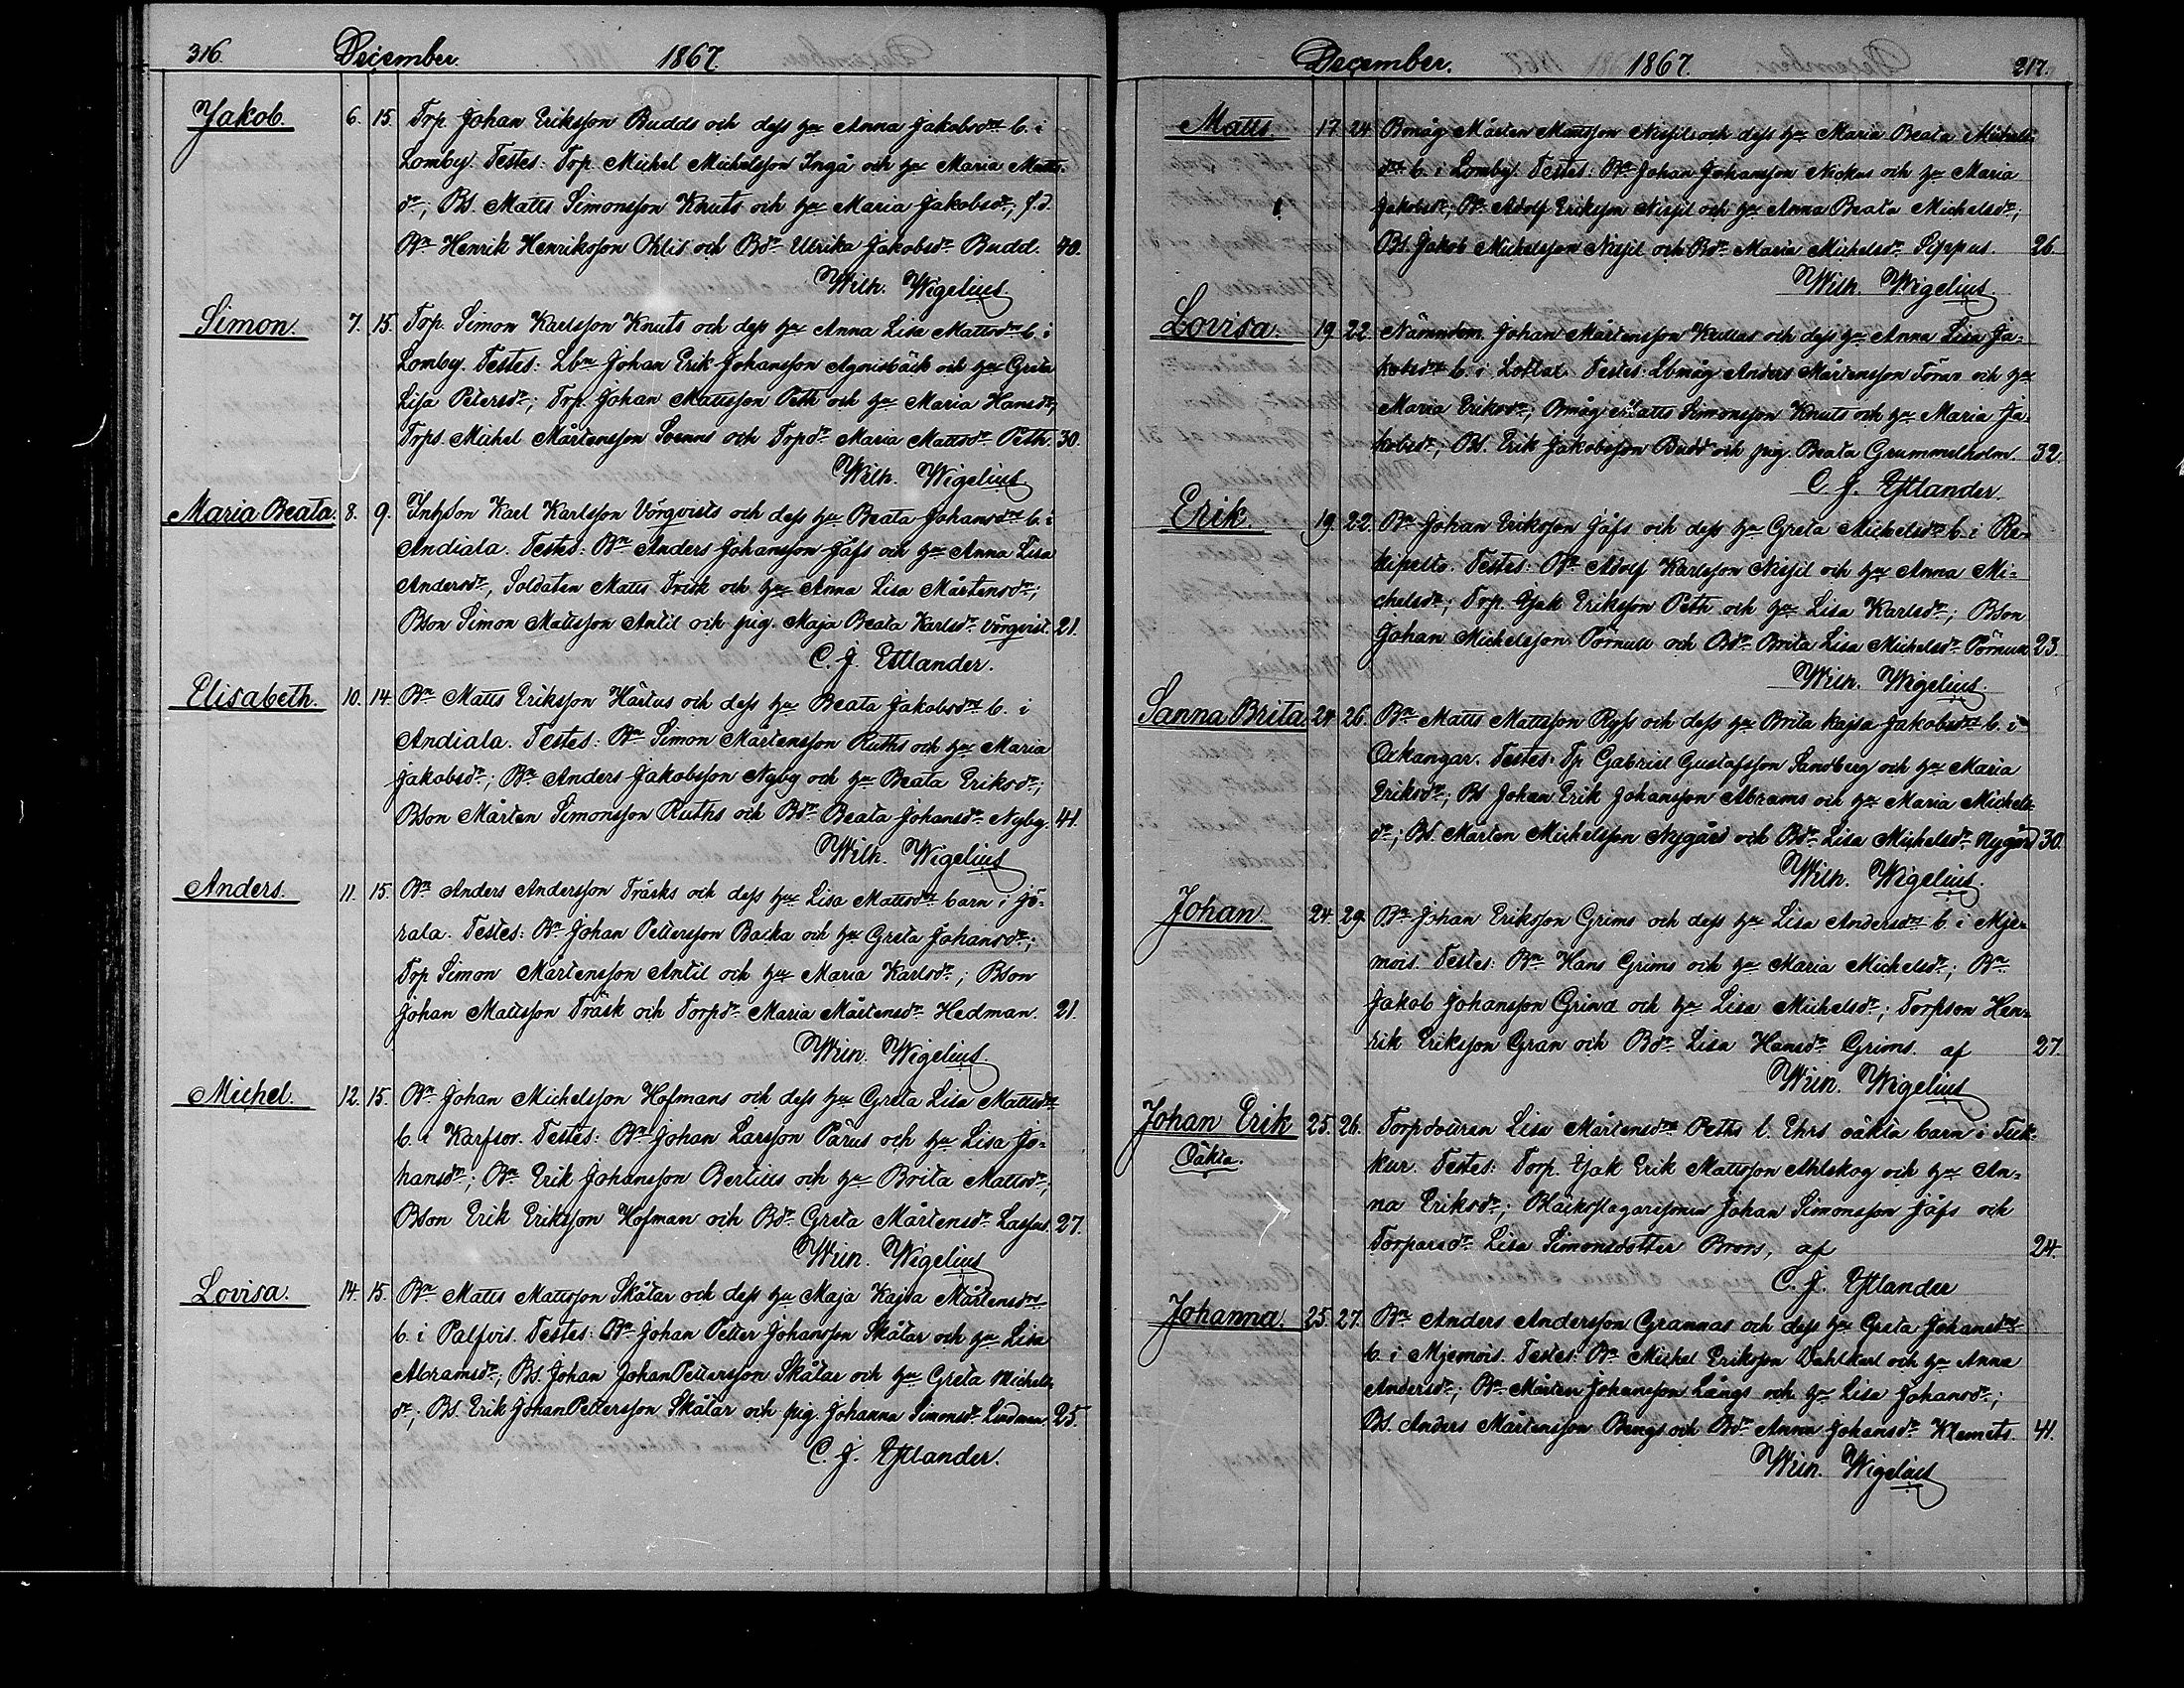 316. December. 1867.
Jakob. 6. 15. Torp. Johan Eriksson Budds och dess hu Anna Jakobsdrs b. i
Lomby. Testes: Torp. Michel Michelsson Ingå och hu Maria Matts-
dr; Bs. Matts Simonsson Knuts och hu Maria Jakobsdr, f.d.
Bn Henrik Henriksson Ohlis och Bdr Ulrika Jakobsdr Budd. 40.
Wilh. Wigelius
Simon. 7. 15. Torp. Simon Karlsson Knuts och dess hu Anna Lisa Mattsdrs b. i
Lomby. Testes: Lbn Johan Erik Johansson Agnisbäck och hu Greta
Lisa Petersdr; Torp. Johan Mattsson Peth och hu Maria Hansdr;
Torps. Michel Mårtensson Svenns och Torpdr Maria Mattsdr Peth. 30.
Wilh. Wigelius
Maria Beata. 8. 9. Inhson Karl Karlsson Vörqvists och dess hu Beata Johansdrs b. i
Andiala. Testes: Bn Anders Johansson Jåfs och hu Anna Lisa
Andersdr, Soldaten Matts Frisk och hu Anna Lisa Mårtensdr;
Bson Simon Mattsson Antil och pig. Maja Beata Karlsdr Vörqvist. 21.
C. J. Estlander.
Elisabeth. 10. 14. Bn Matts Eriksson Härtus och dess hu Beata Jakobsdrs b. i
Andiala. Testes: Bn Simon Mårtensson Ruths och hu Maria
Jakobsdr; Bn Anders Jakobsson Nyby och hu Beata Eriksdr;
Bson Mårten Simonsson Ruths och Bdr Beata Johansdr Nyby. 41.
Wilh. Wigelius
Anders. 11. 15. Bn Anders Andersson Träsks och dess hu Lisa Mattsdrs barn i Jö-
rala. Testes: Bn Johan Pettersson Backa och hu Greta Johansdr;
Torp Simon Mårtensson Antil och hu Maria Karlsdr; Bson
Johan Mattsson Träsk och Torpdr Maria Mårtensdr Hedman. 21.
Wilh. Wigelius
Michel. 12. 15. Bn Johan Michelsson Hofmans och dess hu Greta Lisa Mattsdrs
b. i Karfsor. Testes: Bn Johan Larsson Pärus och hu Lisa Jo-
hansdr; Bn Erik Johansson Bertills och hu Brita Mattsdr;
Bson Erik Eriksson Hofman och Bdr Greta Mårtensdr Lassus. 27.
Wilh. Wigelius
Lovisa. 14. 15. Bn Matts Mattsson Skåtar och dess hu Maja Kajsa Mårtensdrs
b. i Palfvis. Testes: Bn Johan Petter Johansson Skåtar och hu Lisa
Abramsdr; Bs. Johan JohanPettersson Skåtar och hu Greta Michels-
dr; Bs. Erik JohanPettersson Skåtar och pig. Johanna Simonsdr Lindman. 25.
C. J. Estlander.
December. 1867. 217.
Matts 17 24 Bmåg Mårten Mattsson Nissils och dess hu Maria Beata Michels-
drs b. i Lomby. Testes: Bn Johan Johansson Nickus och hu Maria
Jakobsdr; Bn Adolf Eriksson Nissil och hu Anna Beata Michelsdr;
Bs. Jakob Michelsson Nissil och Bdr Maria Michelsdr Sippus. 26.
Wilh. Wigelius.
Lovisa. 19 22 Nämndem. Johan Mårtensson Kullas och dess hu Anna Lisa Ja-
kobsdrs b. i Lottal. Testes: Lbmåg Anders Mårtensson Törar och hu
Maria Eriksdr; Bmåg Matts Simonsson Knuts och hu Maria Ja-
kobsdr; Bs. Erik Jakobsson Budd och pig. Beata Grummelholm. 32.
C. J. Estlander
Erik. 19. 22. Bn Johan Eriksson Jåfs och dess hu Greta Michelsdrs b. i Re-
kipelto. Testes: Bn Adolf Karlsson Nissil och hu Anna Mi-
chelsdr; Torp. Isak Eriksson Peth och hu Lisa Karlsdr; Bson
Johan Michelsson Pörnull och Bdr Brita Lisa Michelsdr Pörnull 23.
Wilh. Wigelius.
Sanna Brita 24 26. Bn Matts Mattsson Ryss och dess hu Brita Kajsa Jakobsdrs b. i
Oxkangar. Testes: Tp Gabriel Gustafsson Sandberg och hu Maria
Eriksdr; Bs Johan Erik Johansson Abrams och hu Maria Michels-
dr; Bs. Mårten Michelsson Nygård och Bdr Lisa Michelsdr Nygård 30.
Wilh. Wigelius.
Johan. 24. 29. Bn Johan Eriksson Grims och dess hu Lisa Andersdrs b. i Mjer-
mois. Testes: Bn Hans Grims och hu Maria Michelsdr; Bn
Jakob Johansson Grind och hu Lisa Michelsdr; Torpson Hen-
rik Eriksson Gran och Bdr Lisa Hansdr Grims. af 27.
Wilh. Wigelius
Johan Erik 25. 26. Torpdottren Lisa Mårtensdrs Peths l. Ehrs oäkta barn i Tuc-
Oäkta. kur. Testes: Torp. Isak Erik Mattsson Ahlskog och hu An-
na Eriksdr; Blacksslagarssonen Johan Simonsson Jåfs och
Torparedr Lisa Simonsdotter Brors, af 24.
C. J. Estlander
Johanna. 25. 27. Bn Anders Andersson Grannas och dess hu Greta Johansdrs
b. i Mjemois. Testes: Bn Michel Eriksson Dahlkarl och hu Anna
Andersdr; Bn Mårten Johansson Långs och hu Lisa Johansdr;
Bs. Anders Mårtensson Bengs och Bdr Anna Johansdr Klemets. 41.
Wilh. Wigelius